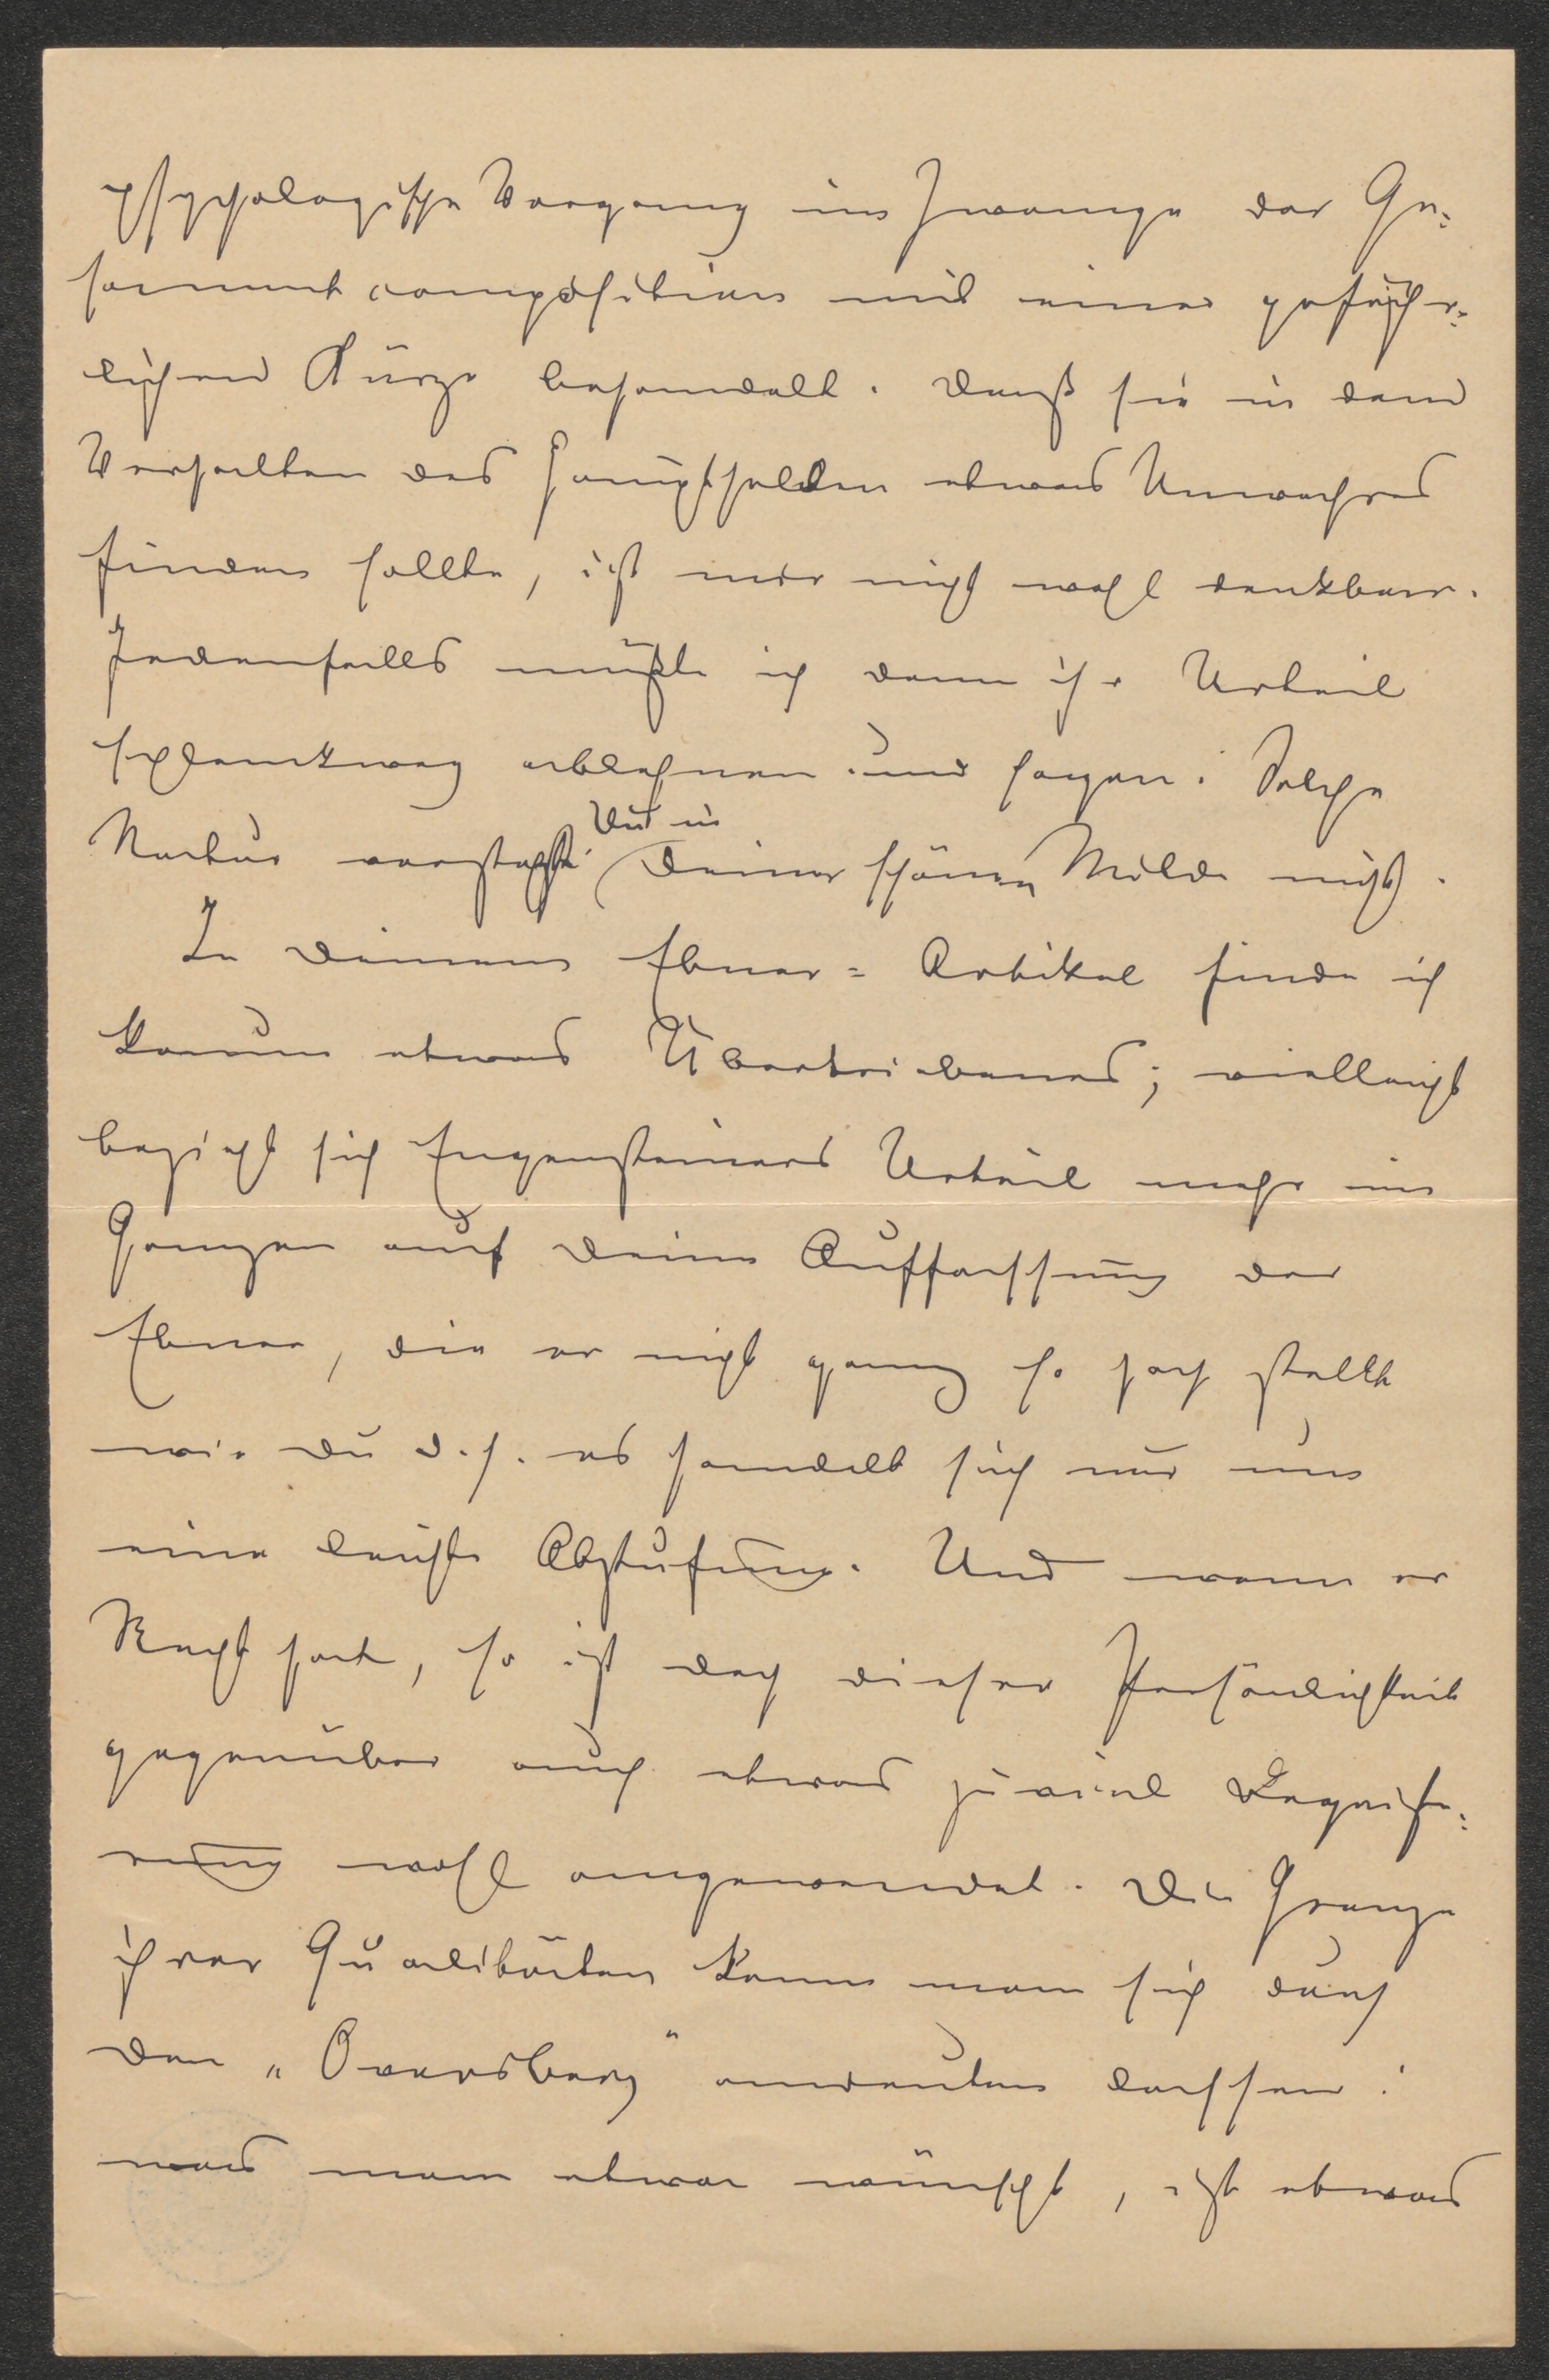 psychologische Vorgang im Zwange der Ge-
sammtcomposition mit einer gefähr-
lichen Kürze behandelt. Daß sie in dem
Verhalten des Haupthelden etwas Unwahres
finden sollte, ist mir nicht wohl denkbar.
Jedenfalls müßte ich dann ihr Urteil
schlankweg ablehnen und sagen: Solche
Natur verstehst
Du in
Deiner schönen Milde nicht.
In Deinem Ebner-Artikel finde ich
kaum etwas Übertriebenes; vielleicht
bezieht sich Ungensteiners Urteil mehr im
Ganzen auf Deine Auffassung der
Ebner, die er nicht ganz so hoch stellt
wie Du d.h. es handelt sich nur um
eine leichte Abstufung. Und wenn er
Recht hat, so ist doch dieser Persönlichkeit
gegenüber auch etwas zuviel Begeiste-
rung wohl angewendet. Die Grenze
ihrer Qualitäten kann man sich durch
den „Oversberg" andeuten lassen:
was man etwa wünscht, ist etwas